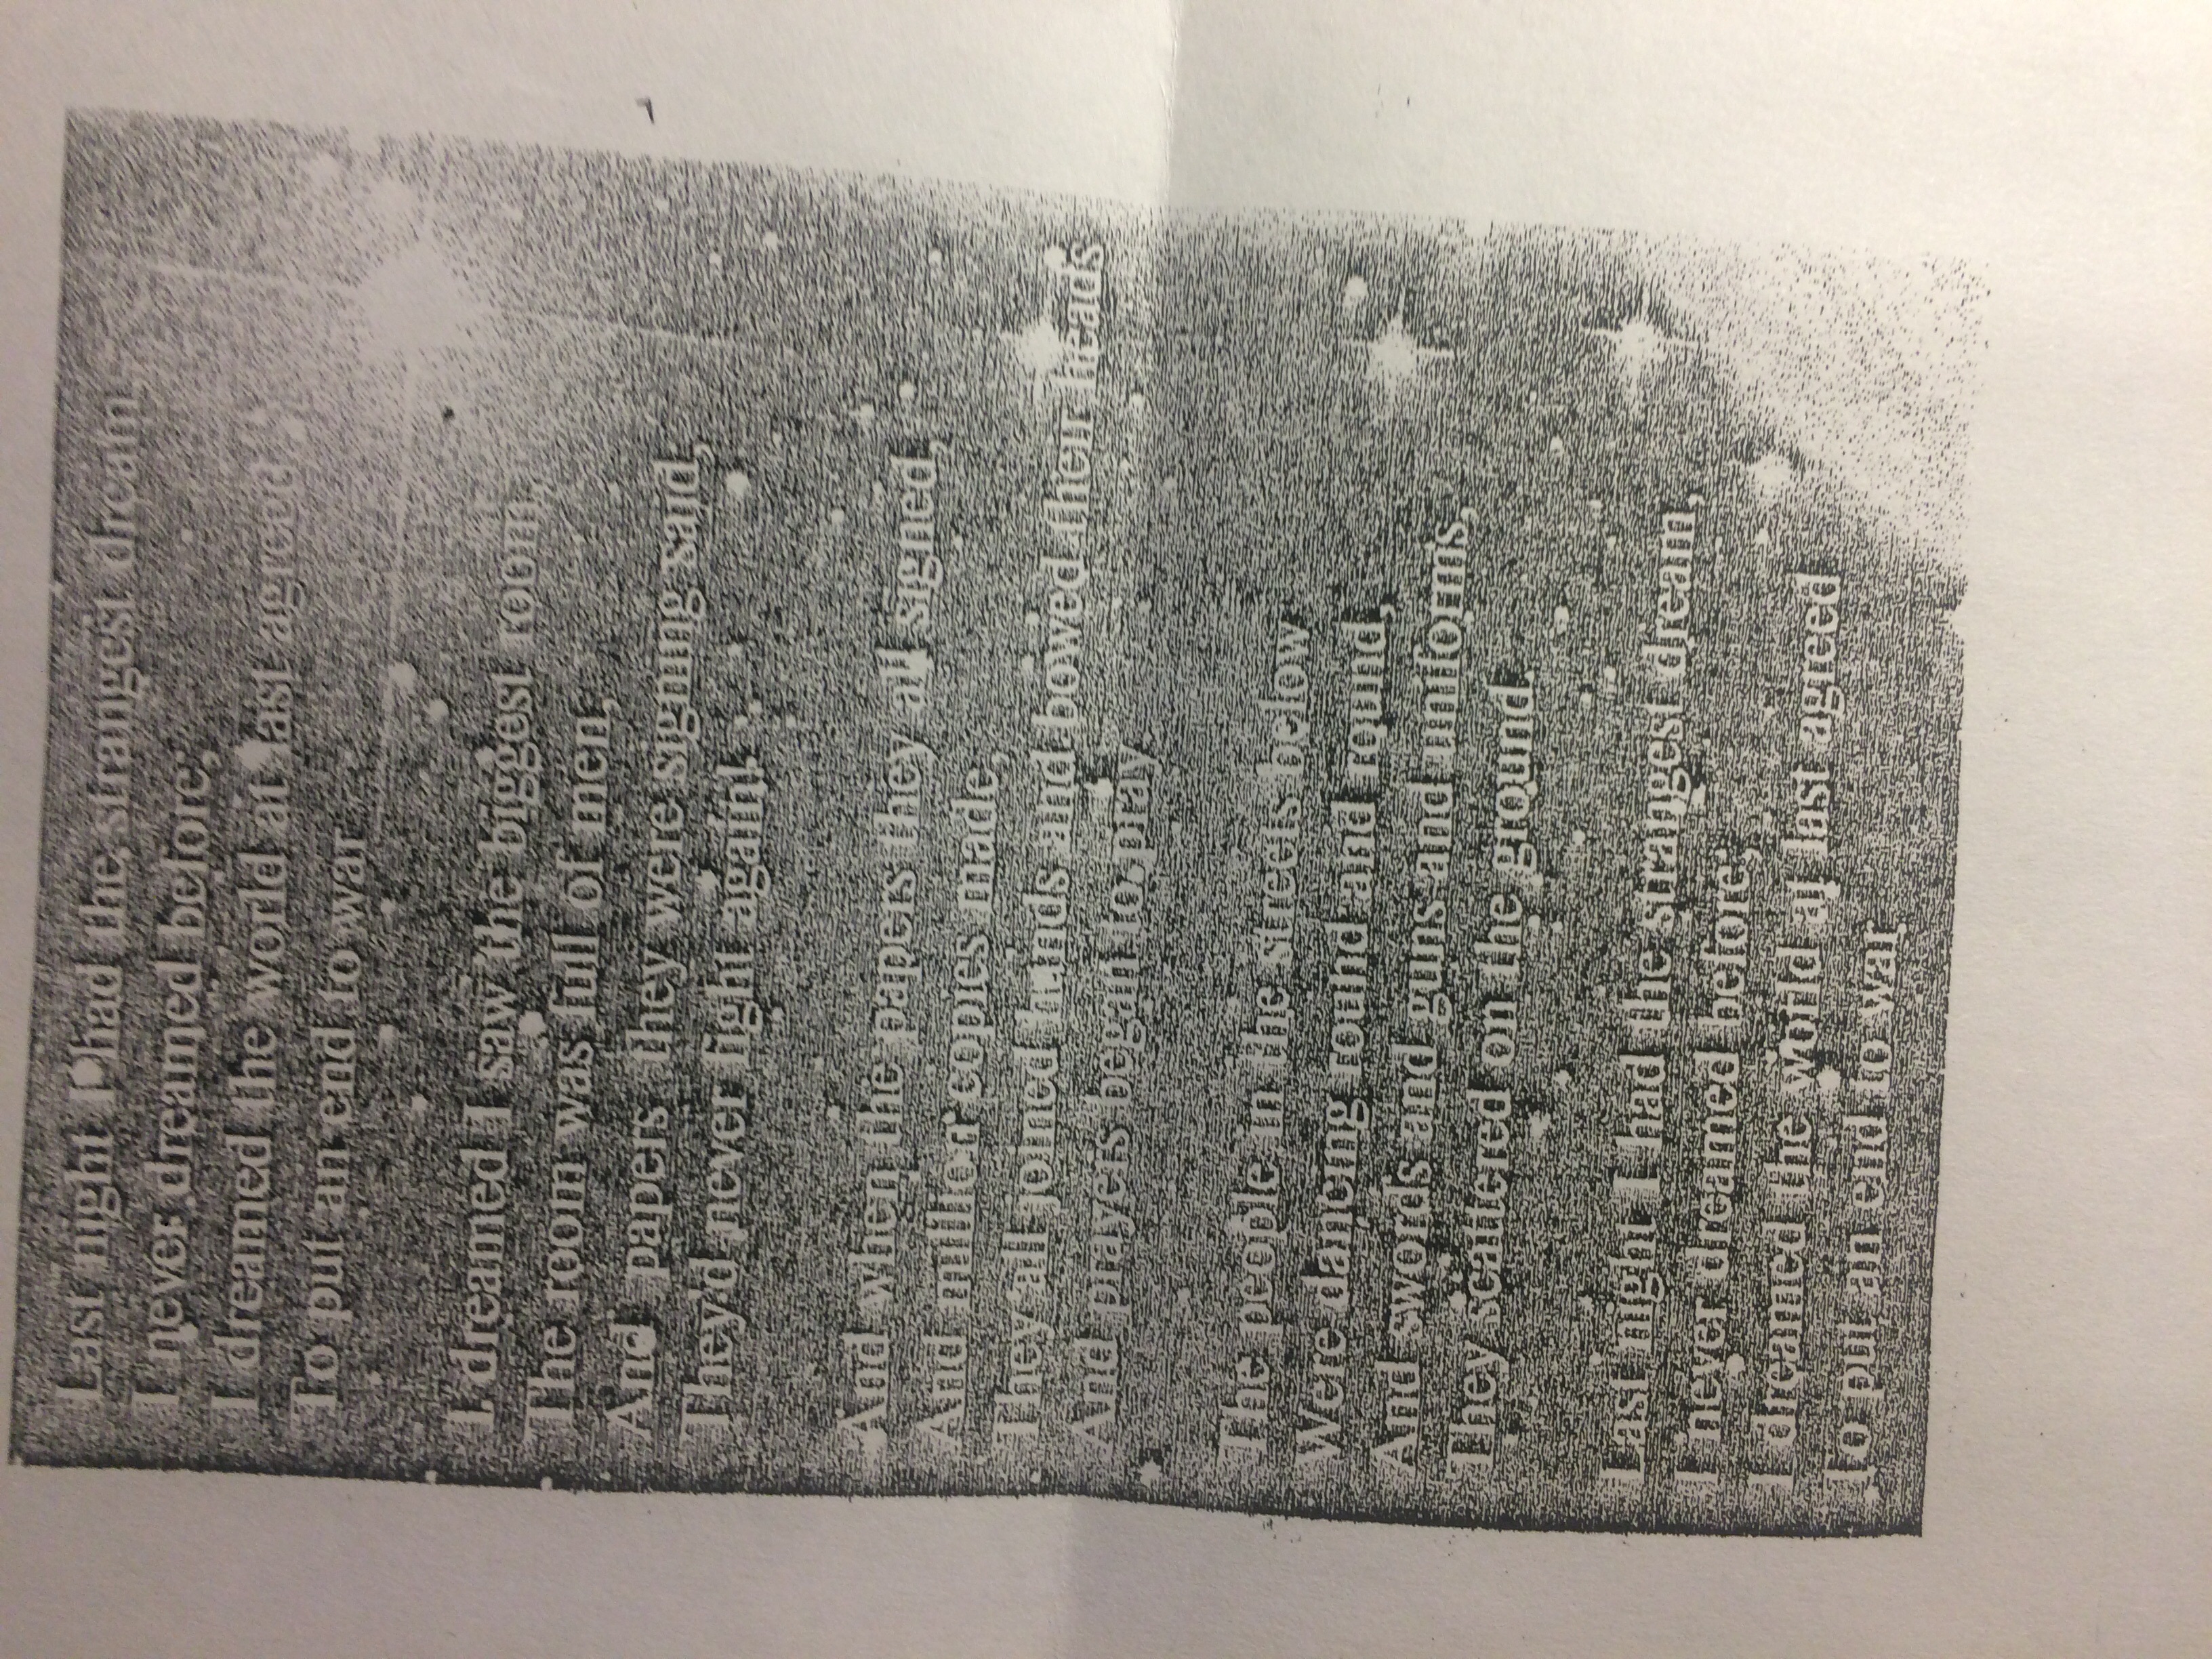 Last night I had the strangest dream,
I never dreamed before,
I dreamed the world at last agreed
To put an end to war
I dreamed I saw the biggest room,
The room was full of men,
And papers they were signing said,
They'd never fight again.
And when the papers they all signed,
And million copies made,
They all joined hands and bowed their heads
And prayers began to pray
The people in the streets below
Were dancing round and round,
And swords and guns and uniforms,
They scattered on the ground.
Last night I had the strangest dream,
I never dreamed before,
I dreamed the world at last agreed
To put an end to war.